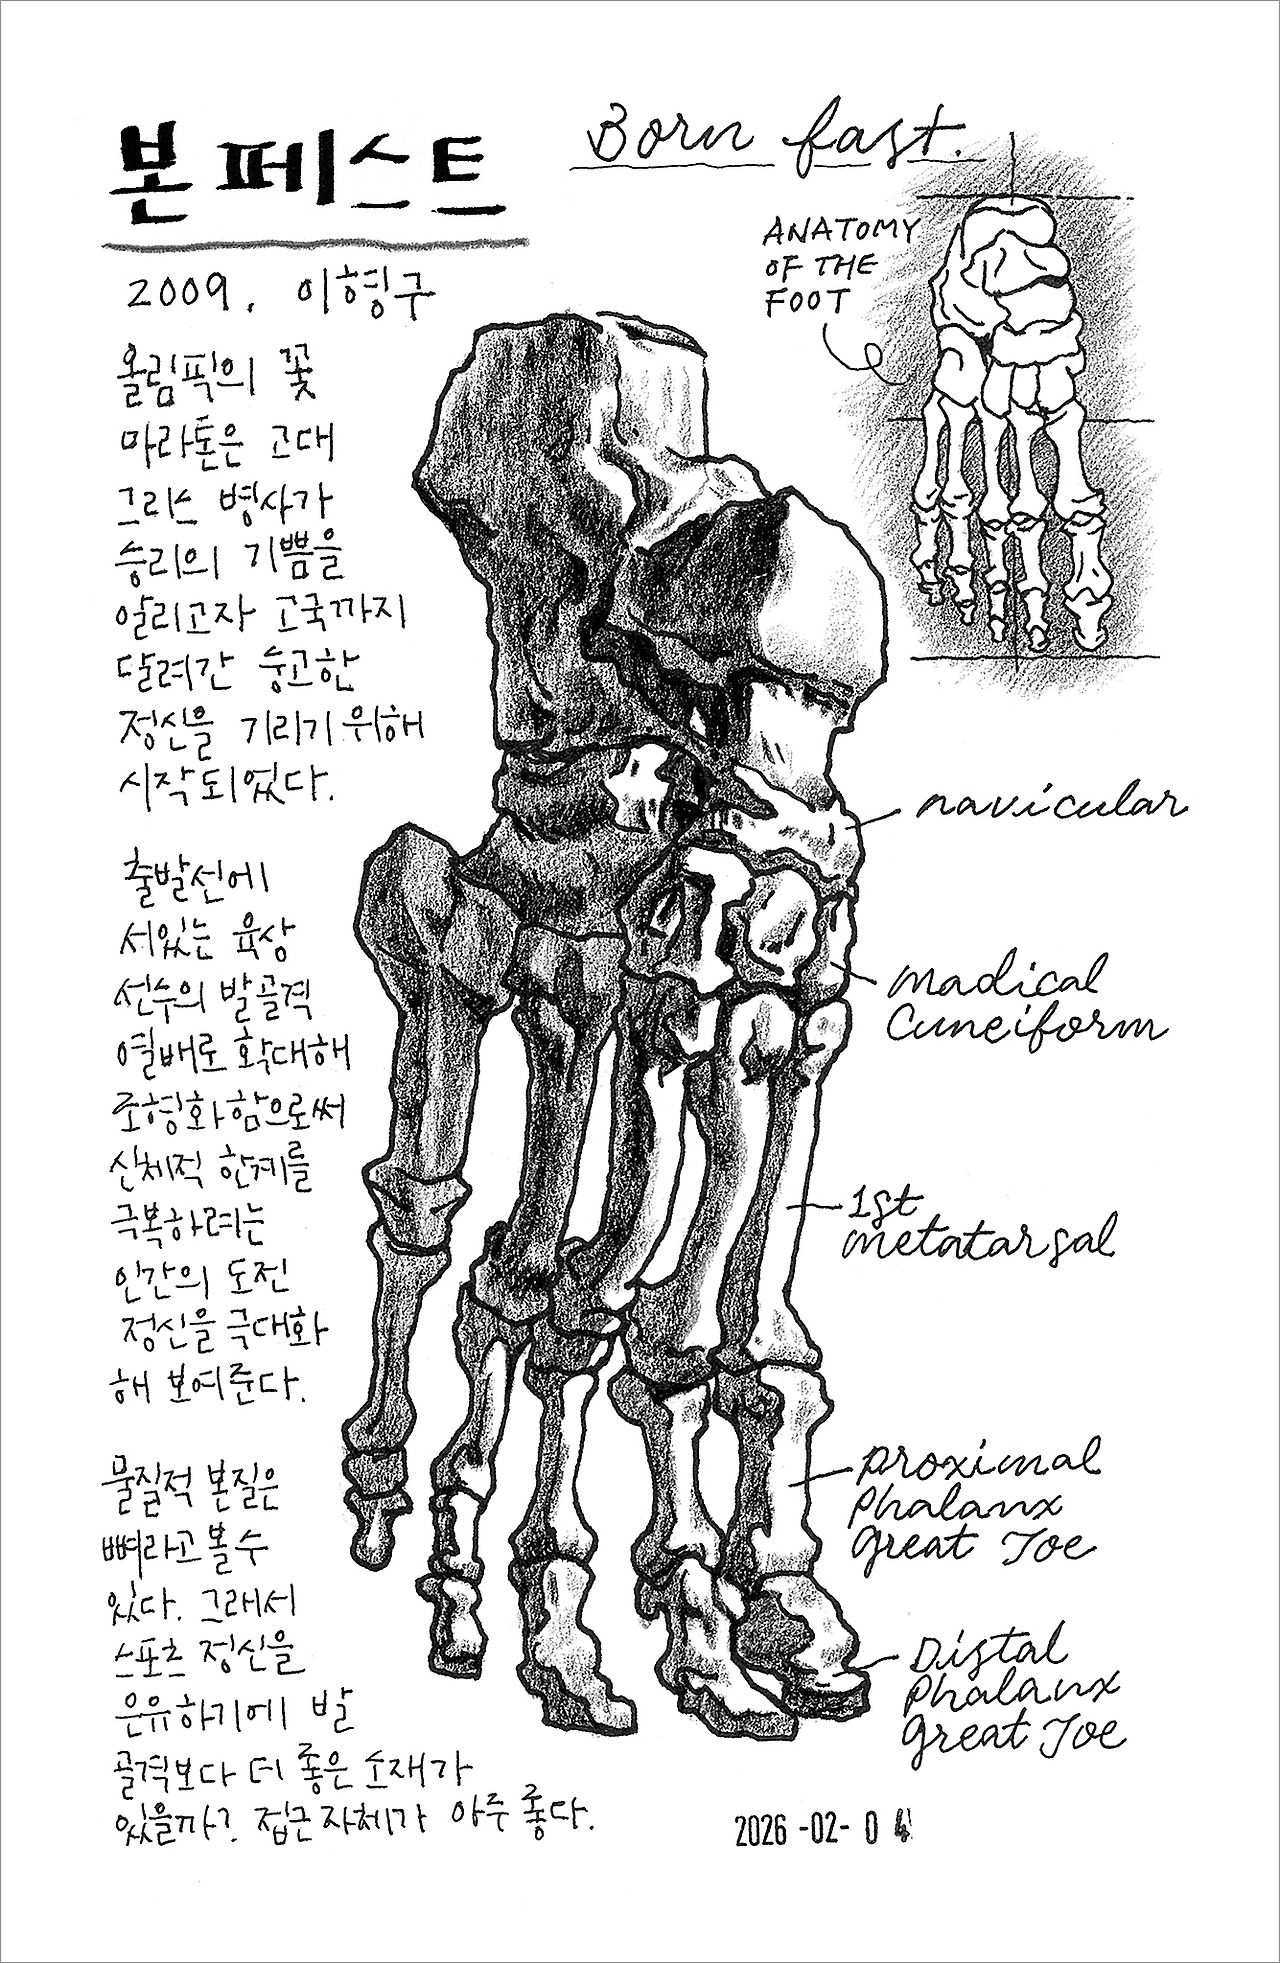 본페스트
Born fast.
2009. 이형구
ANATOMY
OF THE
FOOT
올림픽의 꽃
마라톤은 고대
그리스 병사가
승리의 기쁨을
알리고자 고국까지
달려간 숭고한
정신을 기리기 위해
시작되었다.
출발선에
서있는 육상
선수의 발골격
열배로 확대해
조형화함으로써
신체적 한계를
극복하려는
인간의 도전
정신을 극대화
해 보여준다.
물질적 본질은
뼈라고 볼 수
있다. 그래서
스포츠 정신을
은유하기에 발
골격보다 더 좋은 소재가
있을까? 접근 자체가 아주 좋다.
navicular
madical
Cuneiform
1st
metatarsal
proximal
phalanx
great Toe
Distal
phalanx
great Toe
2026 -02- 0 4